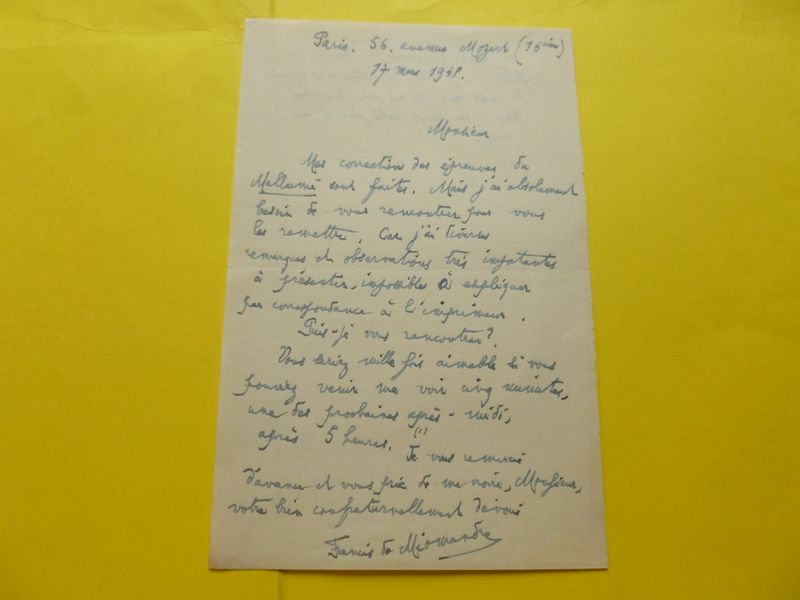 Paris. 56. avenue Mozart (16ème)
17 mars 1948.
Monsieur
Mes correction des épreuves du
Mallarmé sont faites. Mais j'ai absolument
besoin de vous rencontrer pour vous
les remettre. Car j'ai diverses
remarques et observations très importantes
à présenter, impossibles à expliquer
par correspondance à l'imprimeur.
Puis-je vous rencontrer?
Vous seriez mille fois aimable si vous
pouviez venir me voir cinq minutes,
une des prochaines après-midi,
après 5 heures. (1) Je vous remercie
d'avance et vous prie de me croire, Monsieur,
votre bien confraternellement dévoué
Francis de Miomandre